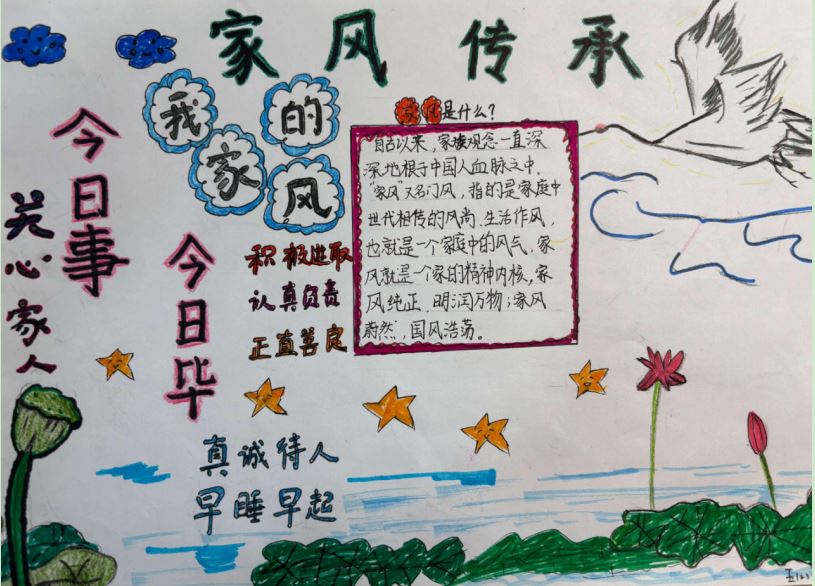 家风传承
我的
家风
今日事
今日毕
关心家人
积极进取
认真负责
正直善良
真诚待人
早睡早起
家风是什么?
自古以来,家族观念一直深
深地根于中国人血脉之中.
“家风”又名门风,指的是家庭中
世代相传的风尚.生活作风,
也就是一个家庭中的风气.家
风就是一个家的精神内核,家
风纯正,明润万物;家风
蔚然,国风浩荡。